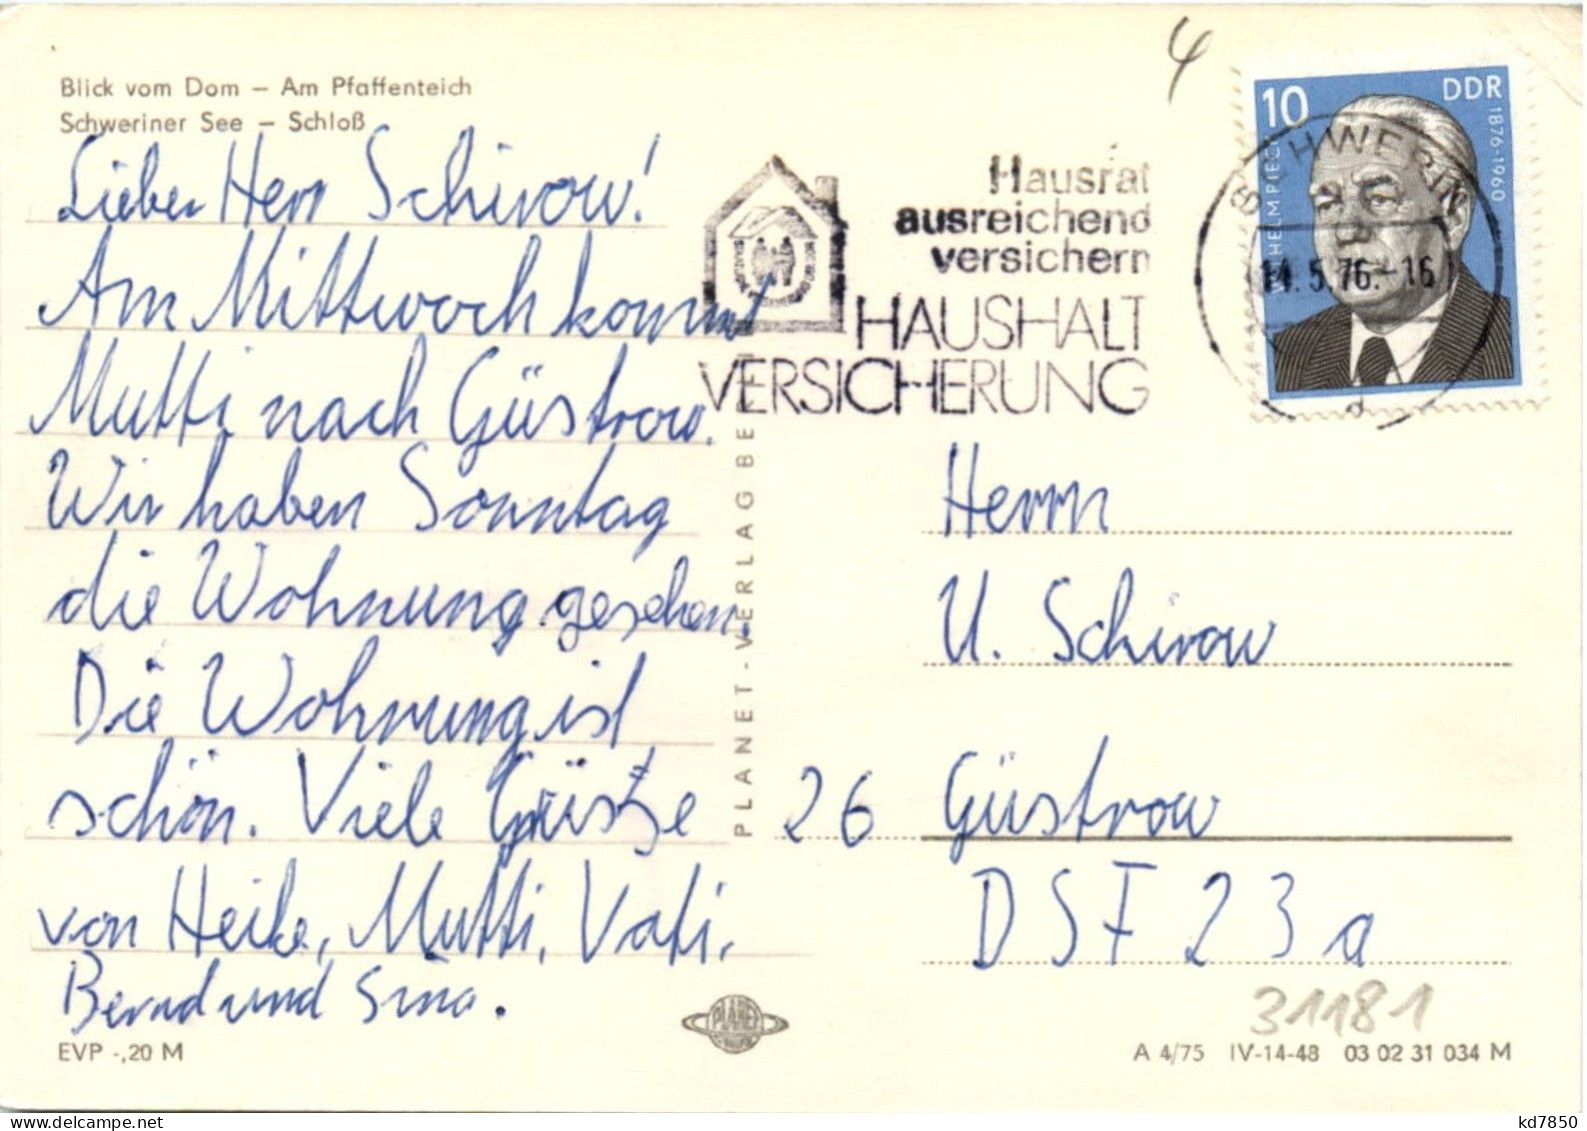 Blick vom Dom – Am Pfaffenteich
Schweriner See – Schloß
Lieber Herr Schirow!
Am Mittwoch kommt
Mutti nach Güstrow.
Wir haben Sonntag
die Wohnung gesehen.
Die Wohnung ist
schön. Viele Grüsse
von Heike, Mutti, Vati,
Bernd und Sina.
EVP -,20 M
PLANET-VERLAG BERLIN
PLANET
4
Hausrat
ausreichend
versichern
HAUSHALT
VERSICHERUNG
10
DDR
WILHELM PIECK
1876-1960
SCHWERIN
11.5.76.-16
Herrn
U. Schirow
26 Güstrow
DSF 23a
31181
A 4/75 IV-14-48 03 02 31 034 M
kd7850